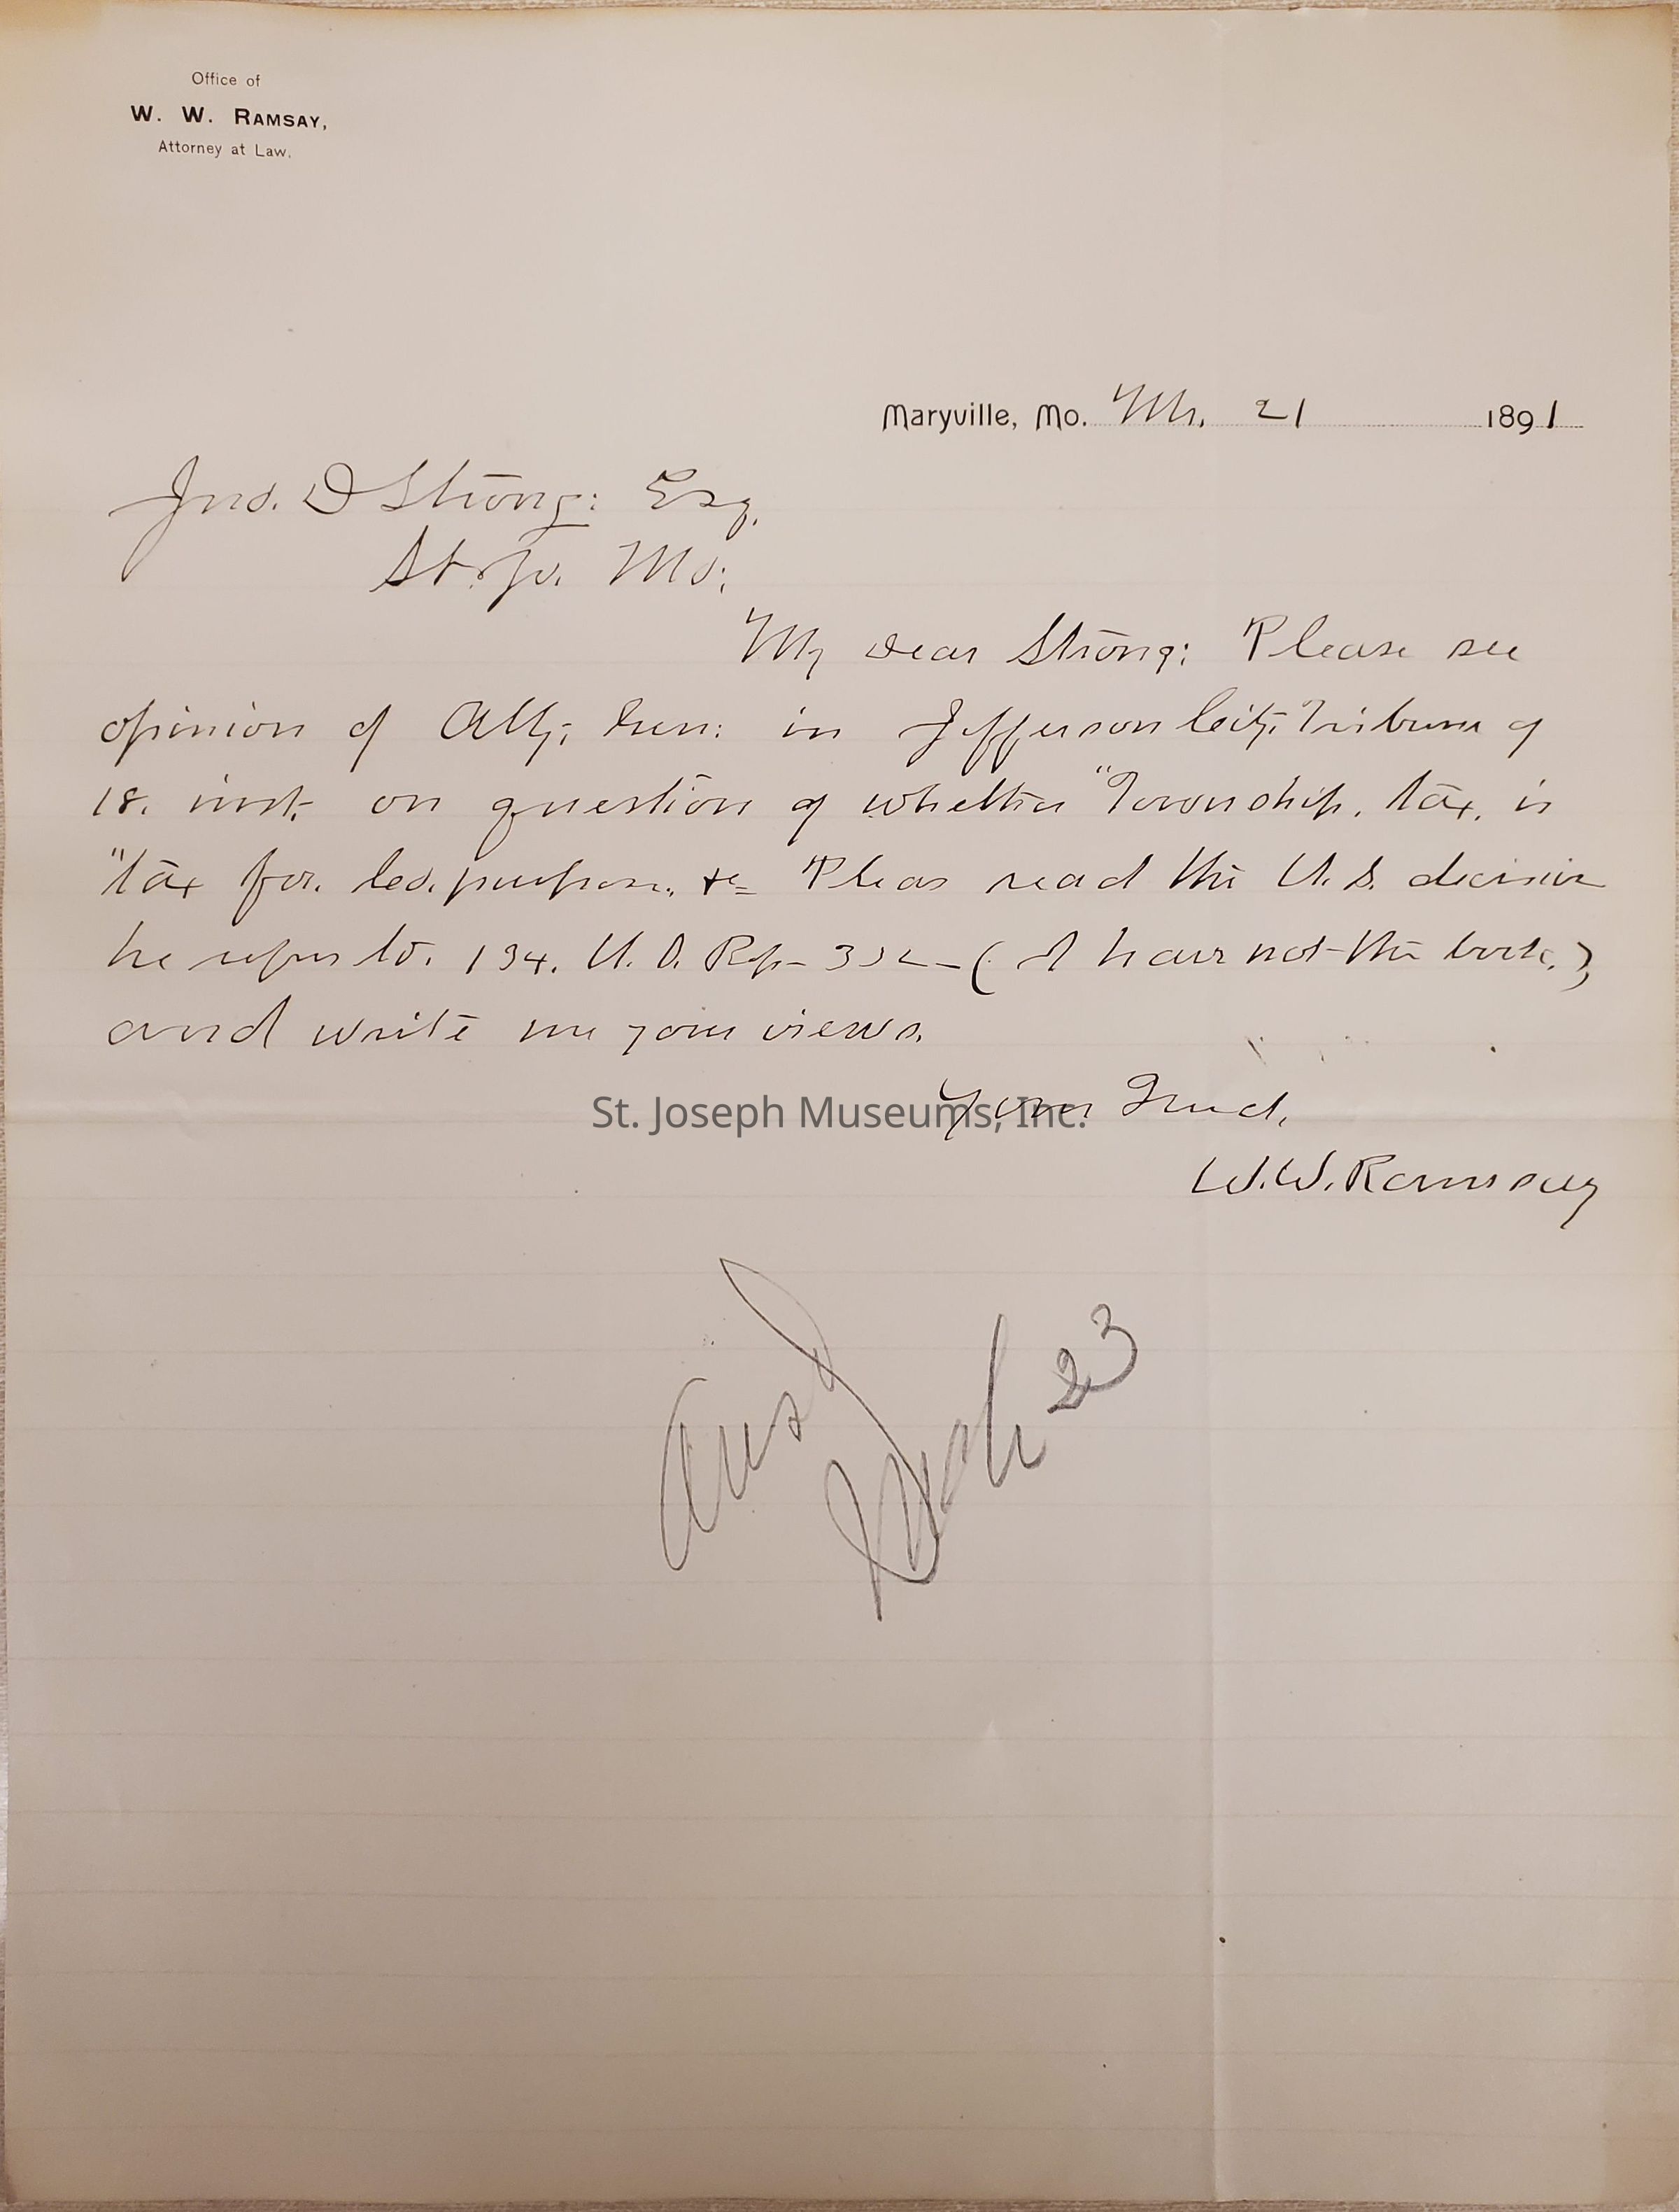 Office of
W. W. RAMSAY,
Attorney at Law.
Maryville, Mo. Mr. 21 1891
Jno. D Strong: Esq.
St. Jo. Mo:
My dear Strong: Please see
opinion of Atty; Gen: in Jefferson City Tribune of
18. inst. on question of whether "Township. tax. is
"tax for. Co. purposes. &c= Pleas read the U. S. decision
he refers to. 134. U. S. Rep- (I have not the book.)
and write me your views.
Your Friend,
St. Joseph Museums, Inc.
W. W. Ramsay
Ansd
March 23